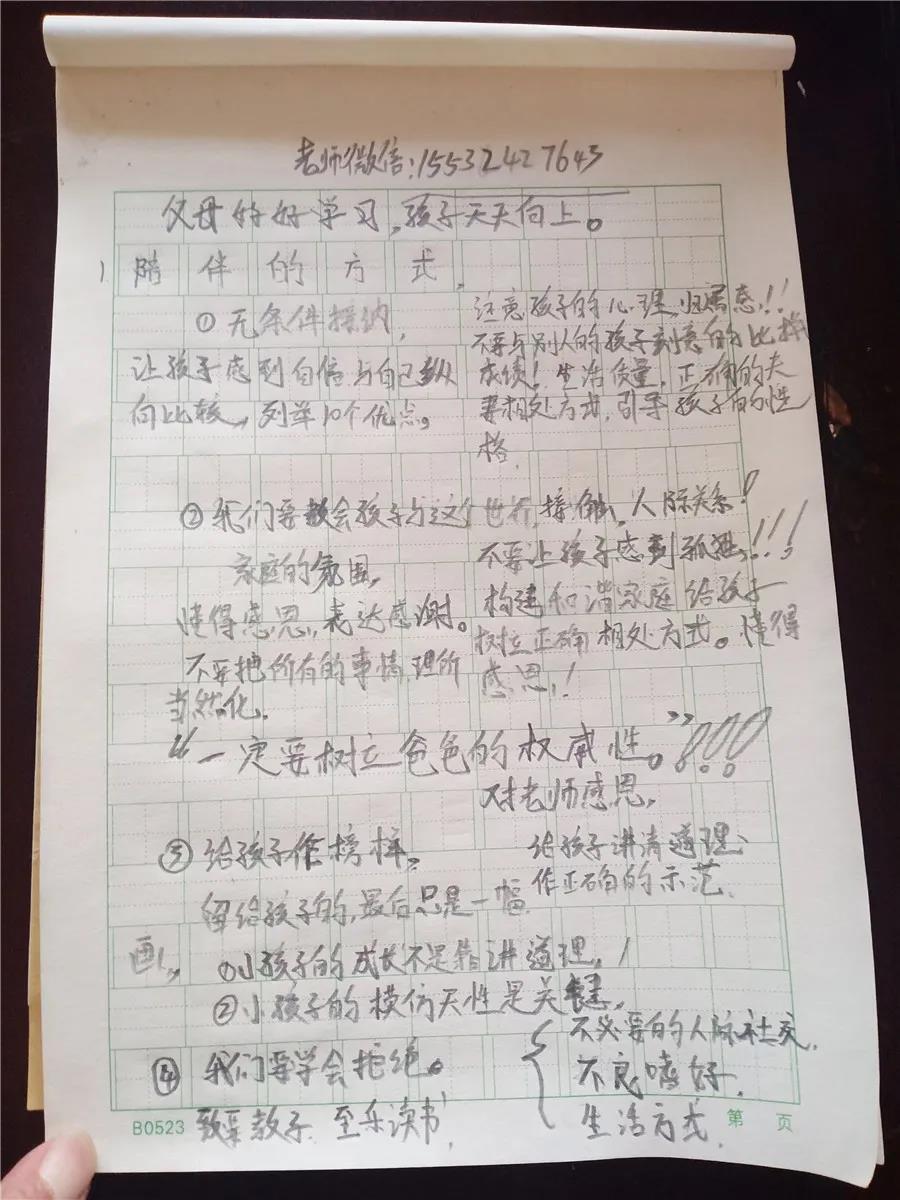 老师微信:15532427643
父母的好学习,孩子天天向上。
1 陪伴的方式,
①无条件接纳,
让孩子感到自信与自己纵
向比较,列举10个优点。
注意孩子的心理,归属感!!
不要与别人的孩子刻意的比拼
成绩!生活质量,正确的夫
妻相处方式,引导孩子的性
格,
②我们要教会孩子与这个世界,接触,人际关系!
家庭的氛围,
懂得感恩,表达感谢。
不要把所有的事情,理所
当然化,
不要让孩子感到孤独,!!!
构建和谐家庭给孩子
树立正确相处方式。懂得
感恩,!
“一定要树立爸爸的权威性。”!!!
对老师感恩,
③给孩子作榜样,
留给孩子的,最后只是一幅
画,
给孩子讲清道理、
作正确的示范,
①小孩子的成长不是靠讲道理,!
②小孩子的模仿天性是关键,
④我们要学会拒绝。
不必要的人际社交,
不良嗜好,
生活方式,
教子,至乐读书,
B0523
第 页